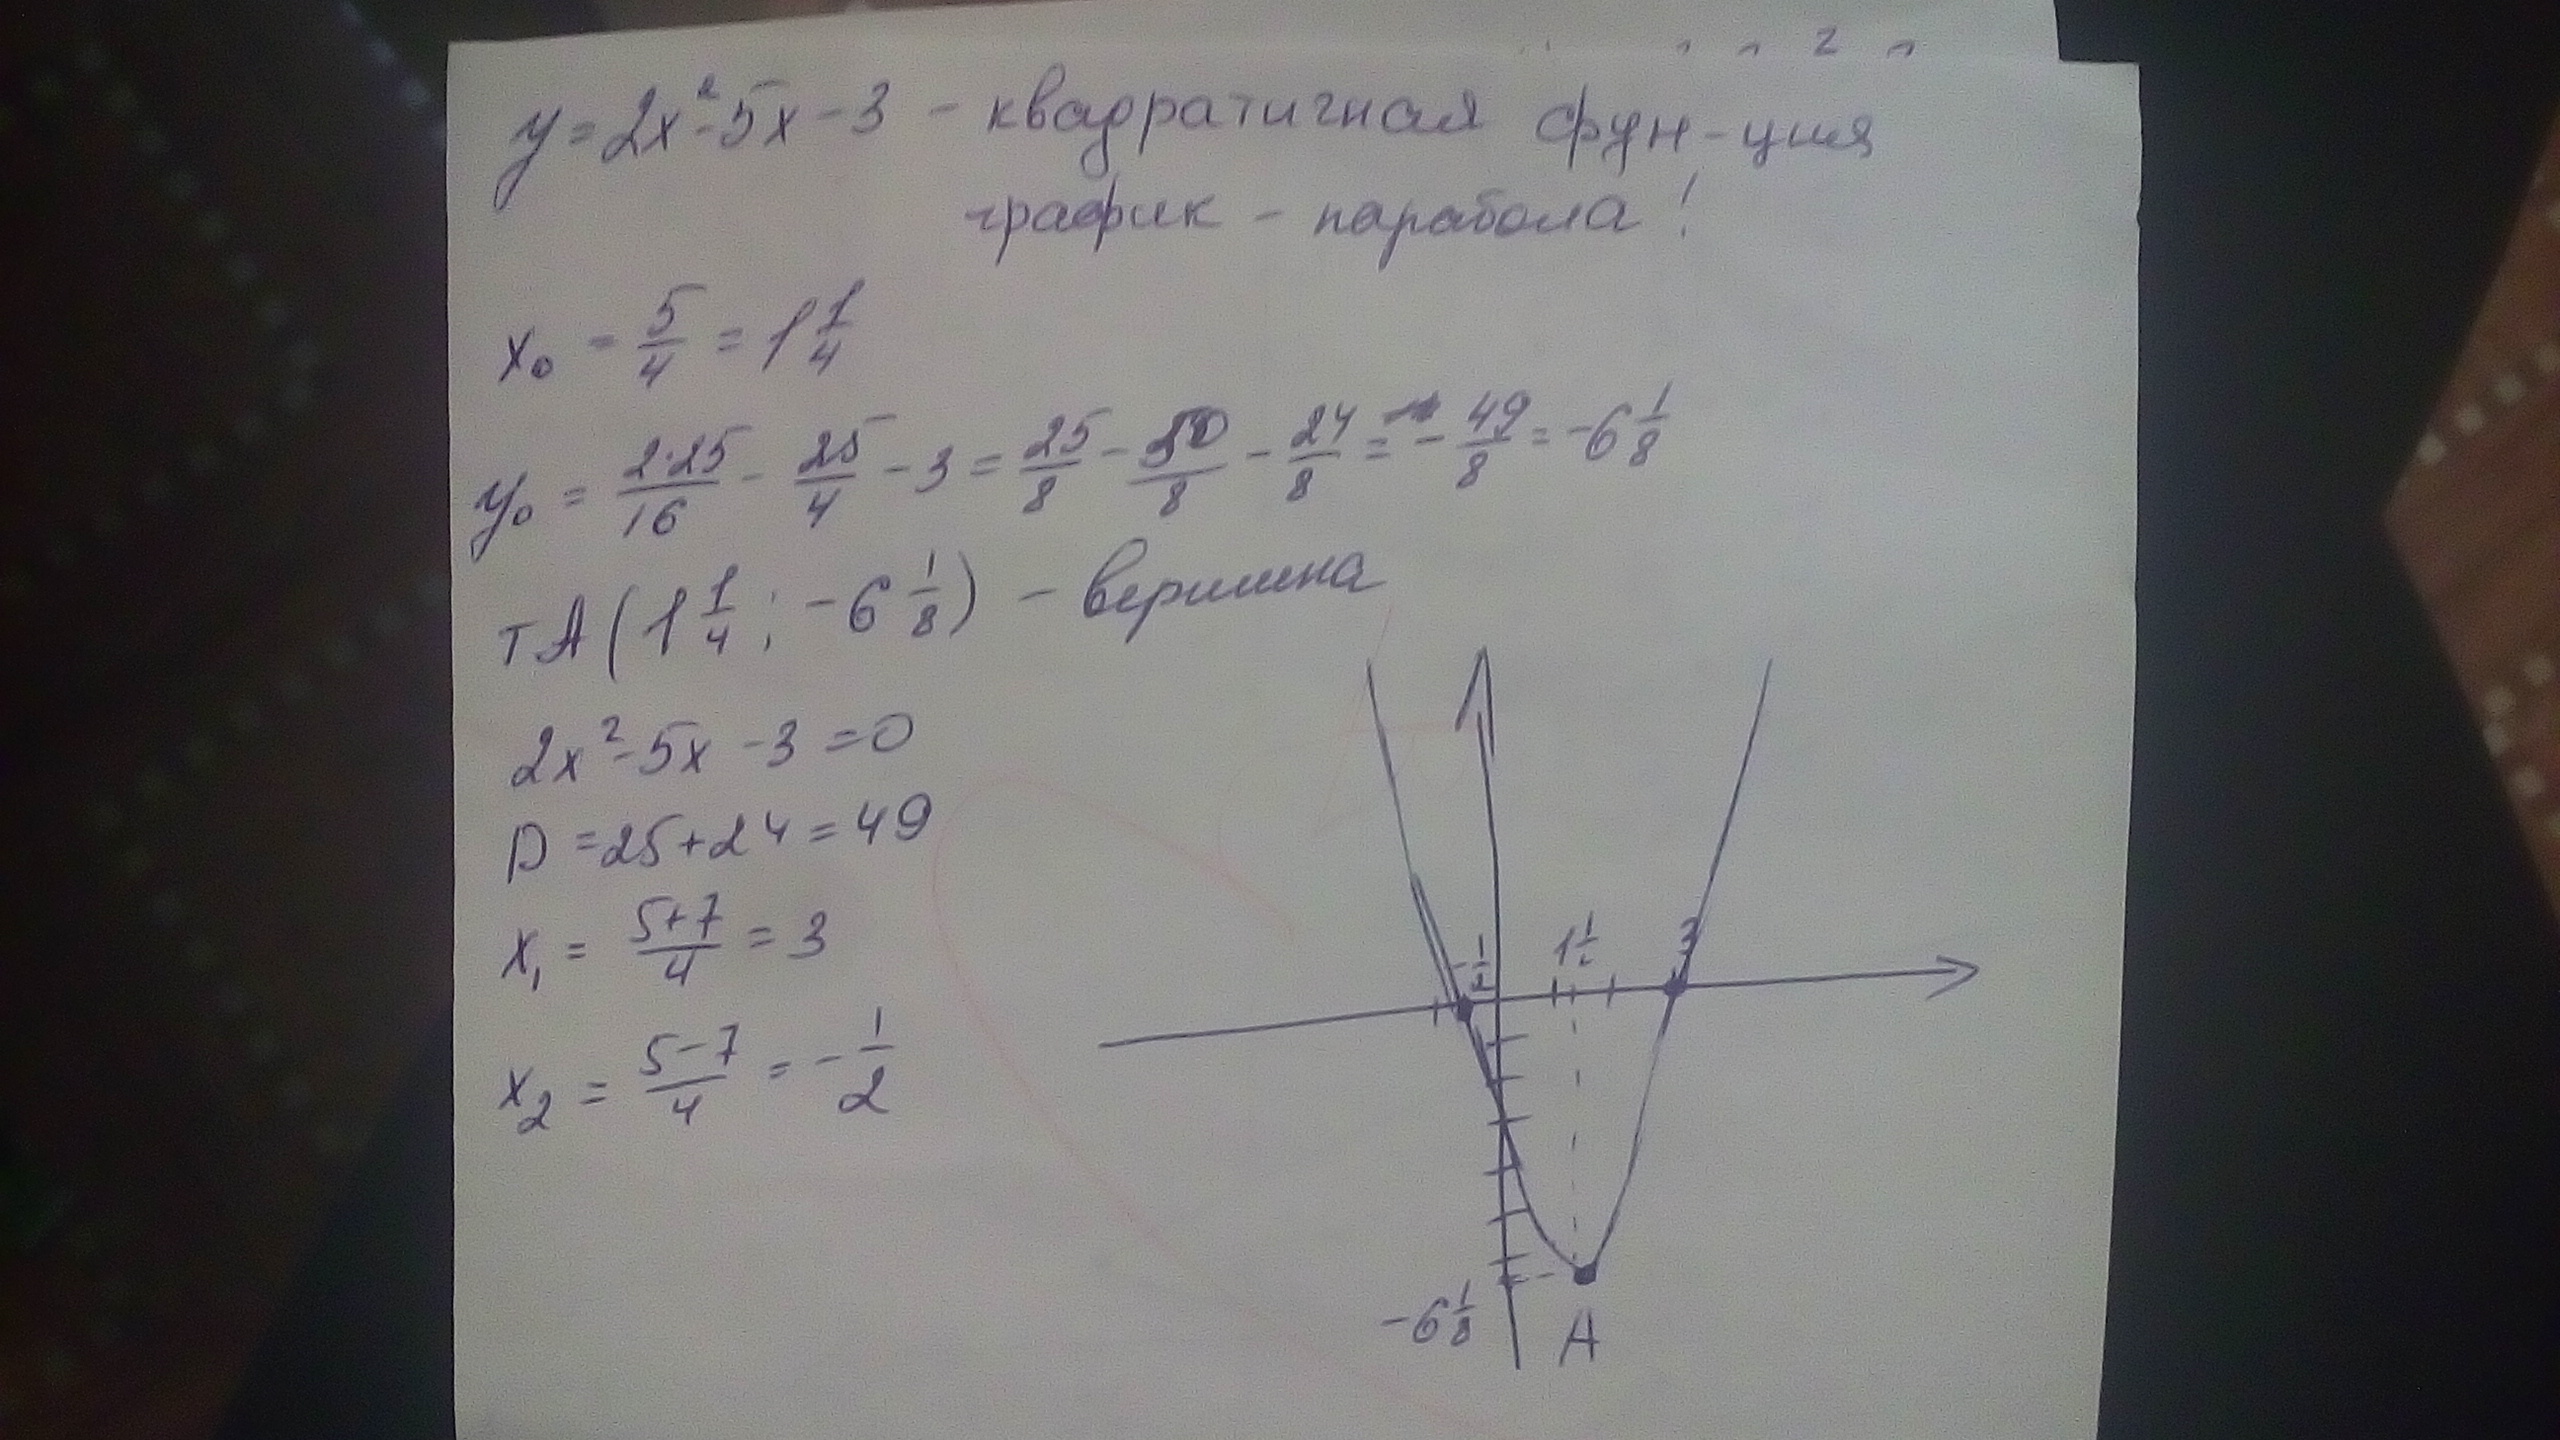 y = 2x² - 5x - 3 - квадратичная фун-ция
график - парабола!
x₀ = 5/4 = 1 1/4
y₀ = 2·25/16 - 25/4 - 3 = 25/8 - 50/8 - 24/8 = - 49/8 = -6 1/8
тA (1 1/4 ; -6 1/8) - вершина
2x² - 5x - 3 = 0
D = 25 + 24 = 49
x₁ = 5+7/4 = 3
x₂ = 5-7/4 = - 1/2
-1/2
3
-6 1/8
A